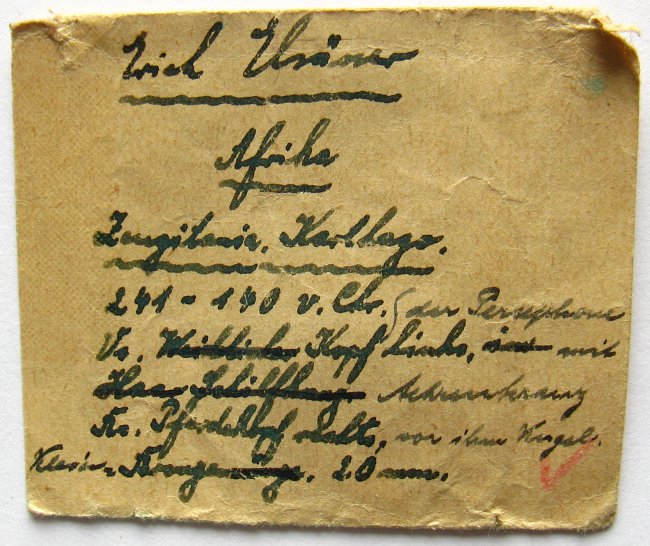 Erich
Afrika
Zeugitania, Karthago.
241 - 140 v. Chr. (der Persephone
Vs. Weiblicher Kopf links, im mit
Haar Schilfkranz Aehrenkranz
Rs. Pferdekopf rechts, vor ihm Kugel.
Klein-Bronze. 20 mm.